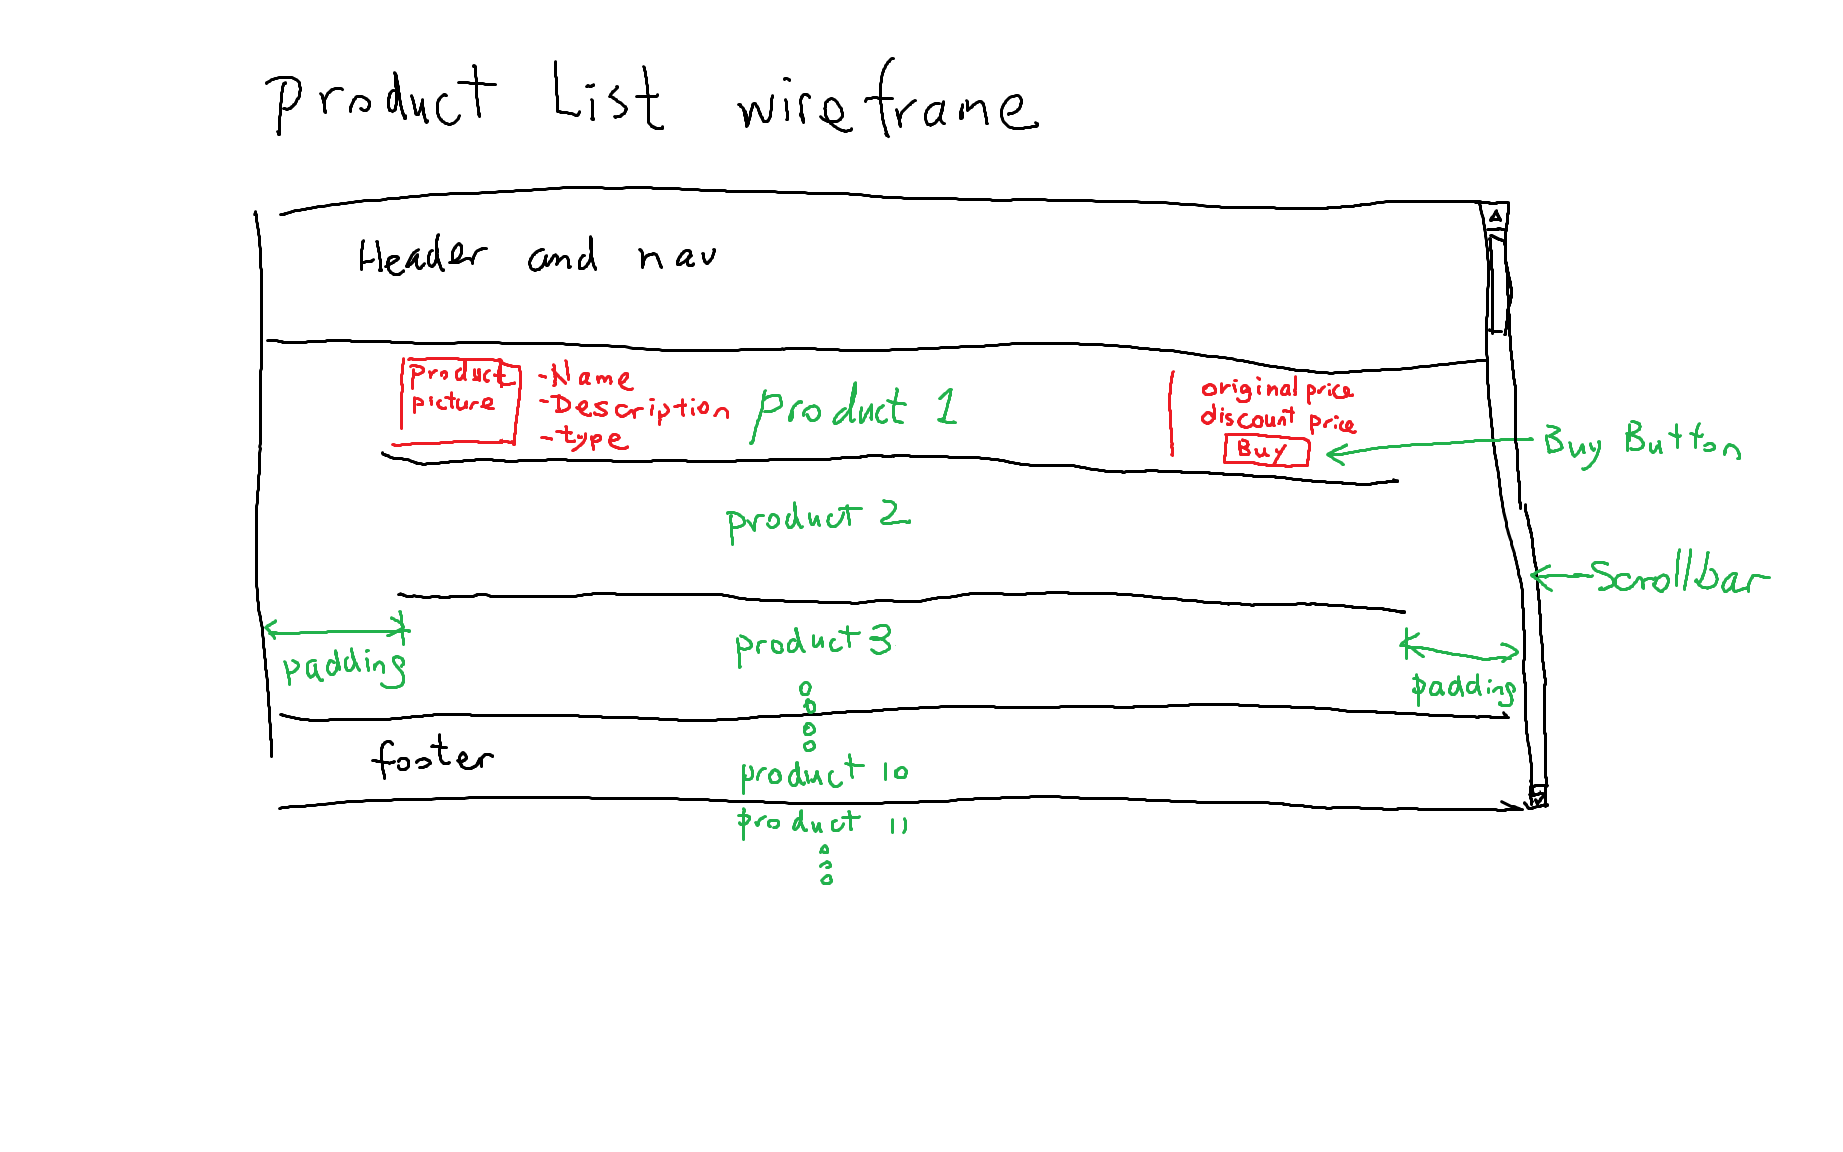 Product List wireframe
Header and nav
product picture
-Name
-Description
-type
product 1
original price
discount price
Buy
Buy Button
product 2
Scrollbar
product 3
padding
padding
footer
product 10
product 11